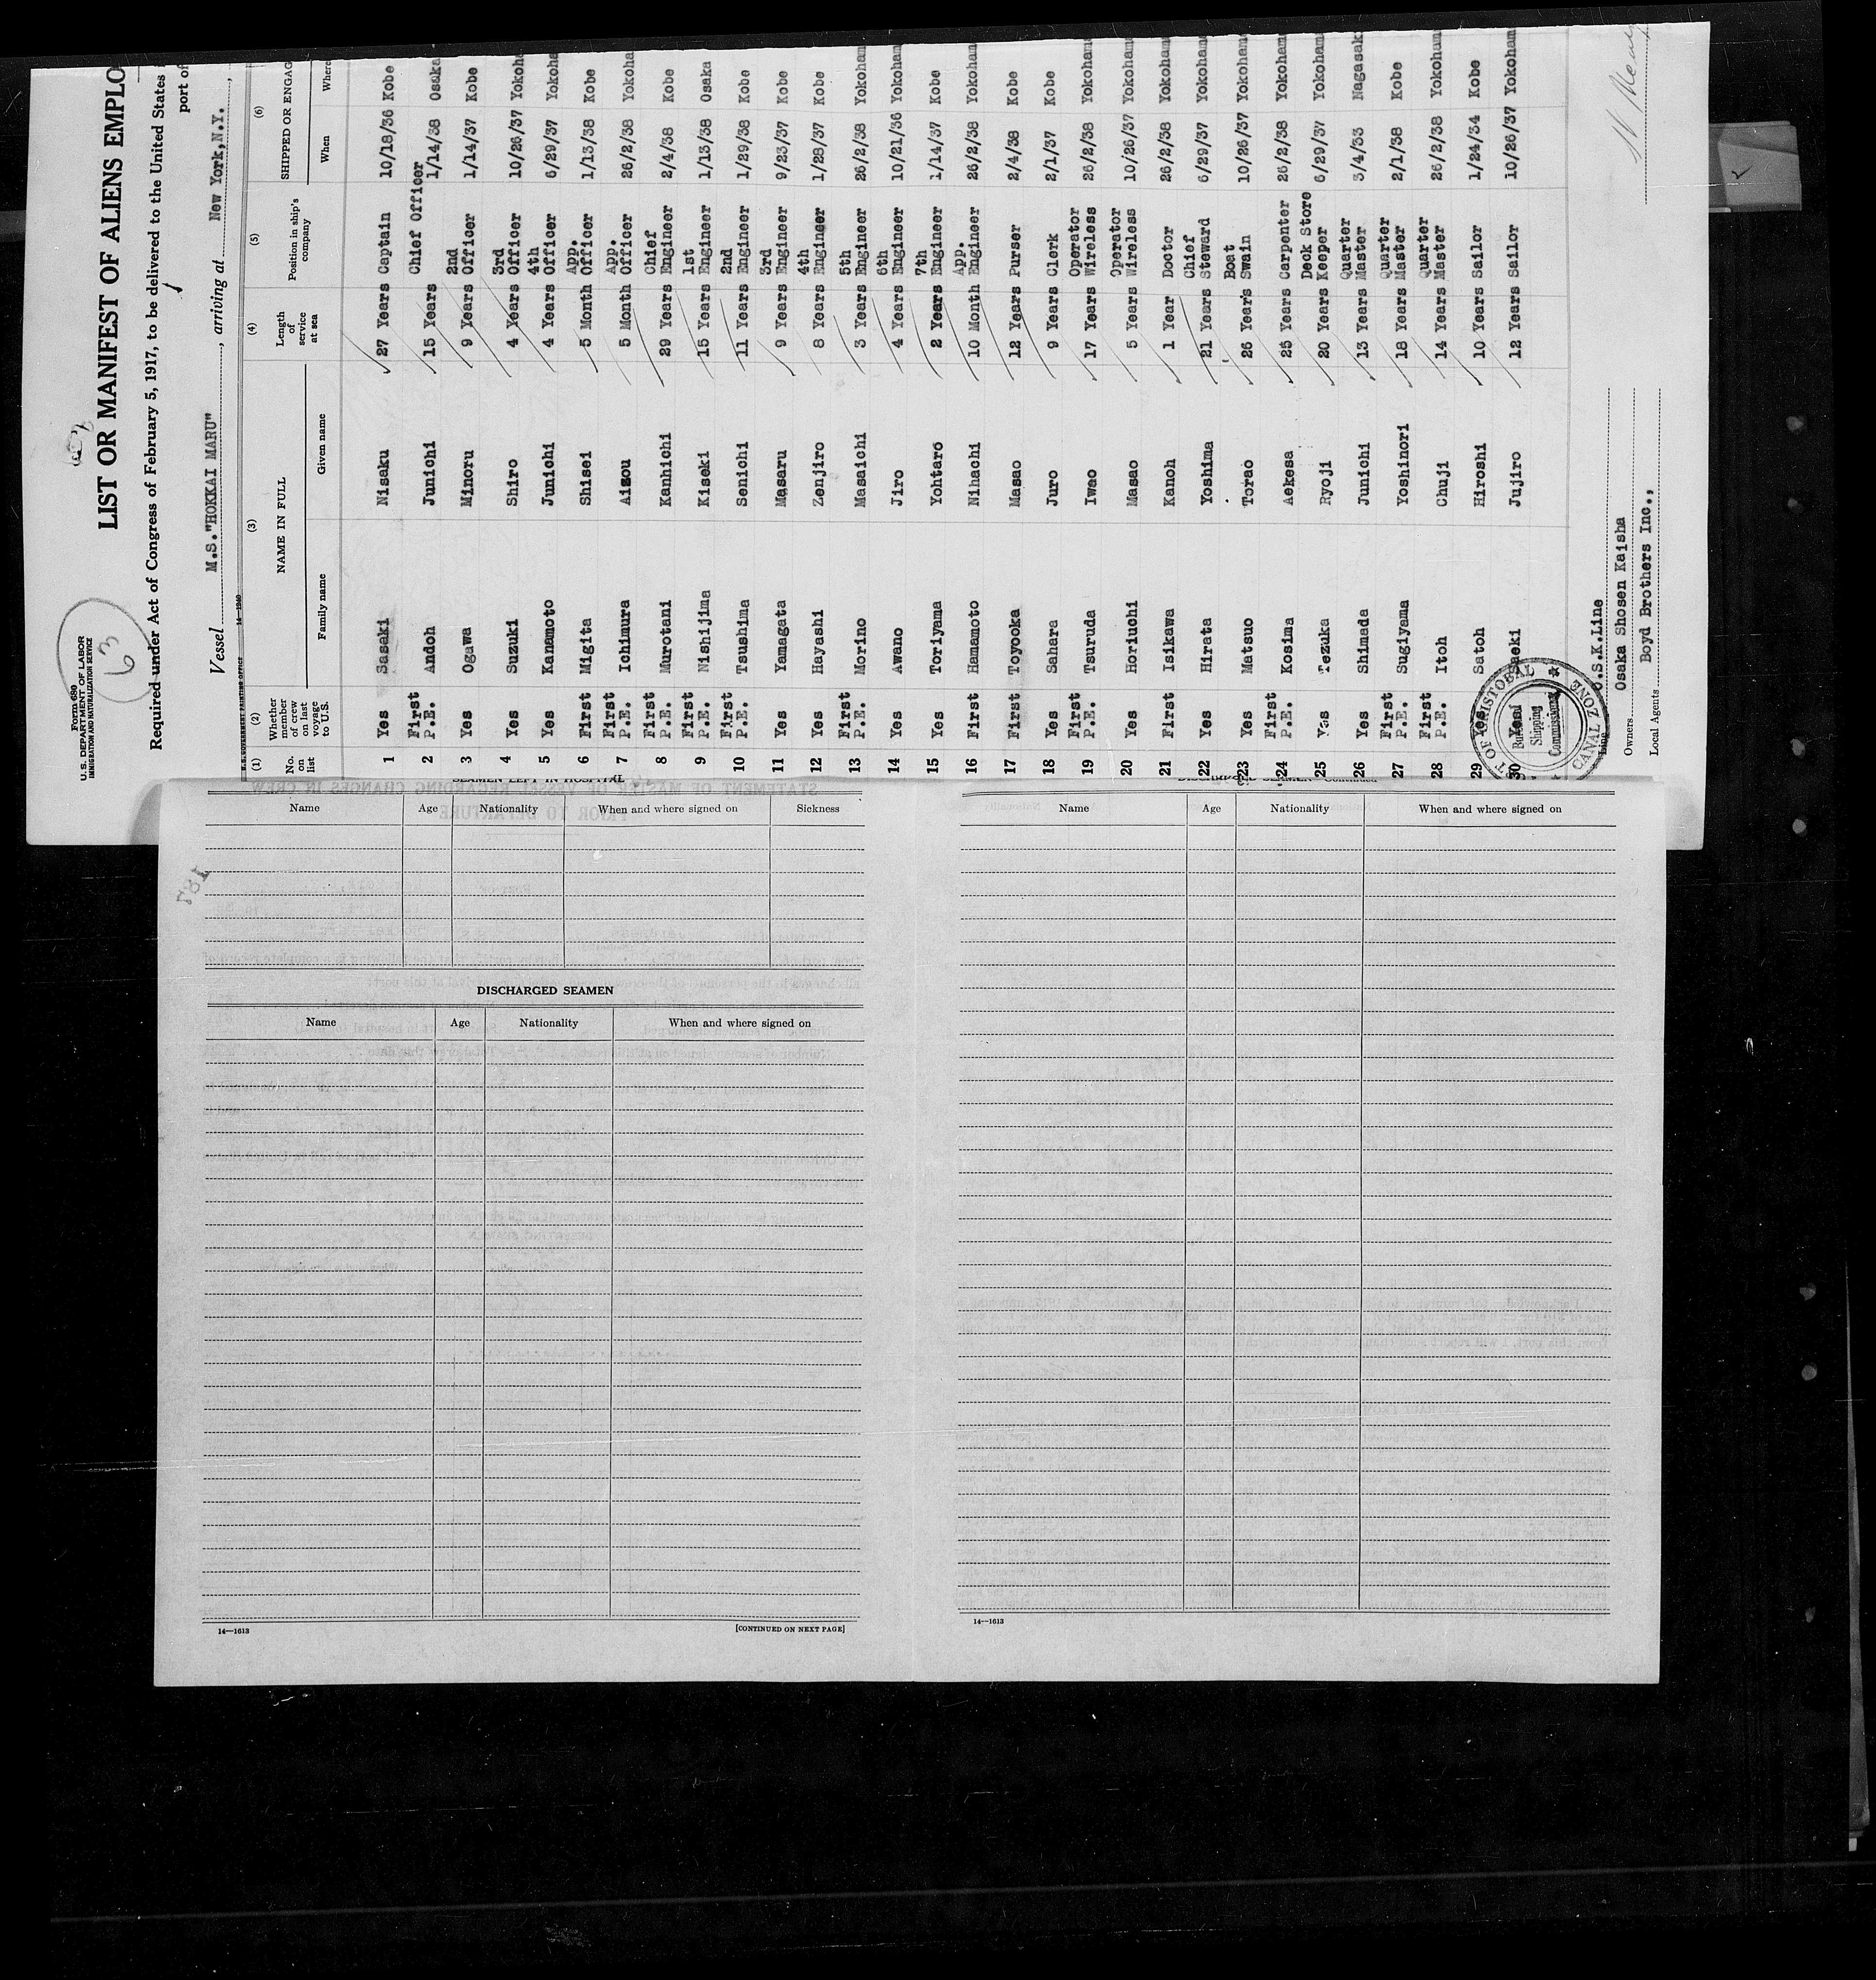 63
Form 680
U. S. DEPARTMENT OF LABOR
IMMIGRATION AND NATURALIZATION SERVICE
LIST OR MANIFEST OF ALIENS EMPLO
Required under Act of Congress of February 5, 1917, to be delivered to the United States
port of
Vessel M.S."HOKKAI MARU", arriving at New York,N.Y.,
U. S. GOVERNMENT PRINTING OFFICE 14—1240
(1) (2) (3) (4) (5) (6)
No. on list Whether member of crew on last voyage to U.S. NAME IN FULL Family name Given name Length of service at sea Position in ship's company SHIPPED OR ENGAG When Where
1 Yes Sasaki Nisaku 27 Years Captain 10/18/36 Kobe
2 First P.E. Andoh Junichi 15 Years Chief Officer 1/14/38 Osaka
3 Yes Ogawa Minoru 9 Years 2nd Officer 1/14/37 Kobe
4 Yes Suzuki Shiro 4 Years 3rd Officer 10/26/37 Yokoha
5 Yes Kanamoto Junichi 4 Years 4th Officer 6/29/37 Yokoha
6 First Migita Shisei 5 Month App. Officer 1/13/38 Kobe
7 First P.E. Ichimura Aizou 5 Month App. Officer 26/2/38 Yokoha
8 First P.E. Murotani Kanhichi 29 Years Chief Engineer 2/4/38 Kobe
9 First P.E. Nishijima Kiseki 15 Years 1st Engineer 1/13/38 Osaka
10 First P.E. Tsushima Senichi 11 Years 2nd Engineer 1/29/38 Kobe
11 Yes Yamagata Masaru 9 Years 3rd Engineer 9/23/37 Kobe
12 Yes Hayashi Zenjiro 8 Years 4th Engineer 1/28/37 Kobe
13 First P.E. Morino Masaichi 3 Years 5th Engineer 26/2/38 Yokoham
14 Yes Awano Jiro 4 Years 6th Engineer 10/21/36 Yokoham
15 Yes Toriyama Yohtaro 2 Years 7th Engineer 1/14/37 Kobe
16 First Hamamoto Nihachi 10 Month App. Engineer 26/2/38 Yokoham
17 First Toyooka Masao 12 Years Purser 2/4/38 Kobe
18 Yes Sahara Juro 9 Years Clerk 2/1/37 Kobe
19 First P.E. Tsuruda Iwao 17 Years Operator Wireless 26/2/38 Yokoham
20 Yes Horiuchi Masao 5 Years Operator Wireless 10/26/37 Yokoham
21 First Isikawa Kanoh 1 Year Doctor 26/2/38 Yokoham
22 Yes Hirata Yoshima 21 Years Chief Steward 6/29/37 Yokoham
23 Yes Matsuo Torao 26 Years Boat Swain 10/26/37 Yokoham
24 First P.E. Kosima Aekesa 25 Years Carpenter 26/2/38 Yokoham
25 Yes Tezuka Ryoji 20 Years Deck Store Keeper 6/29/37 Yokoham
26 Yes Shimada Junichi 13 Years Quarter Master 3/4/33 Nagasak
27 First P.E. Sugiyama Yoshinori 18 Years Quarter Master 2/1/38 Kobe
28 First P.E. Itoh Chuji 14 Years Quarter Master 26/2/38 Yokoham
29 Yes Satoh Hiroshi 10 Years Sailor 1/24/34 Kobe
30 Yes Saeki Jujiro 12 Years Sailor 10/26/37 Yokoham
PORT OF CRISTOBAL
CANAL ZONE
Shipping
Commissioner
Line O.S.K.Line
Owners Osaka Shosen Kaisha
Local Agents Boyd Brothers Inc.,
SEAMEN LEFT IN HOSPITAL
Name Age Nationality When and where signed on Sickness
DISCHARGED SEAMEN
Name Age Nationality When and where signed on
14—1613
[CONTINUED ON NEXT PAGE]
DISCHARGED SEAMEN—Continued
Name Age Nationality When and where signed on
14—1613